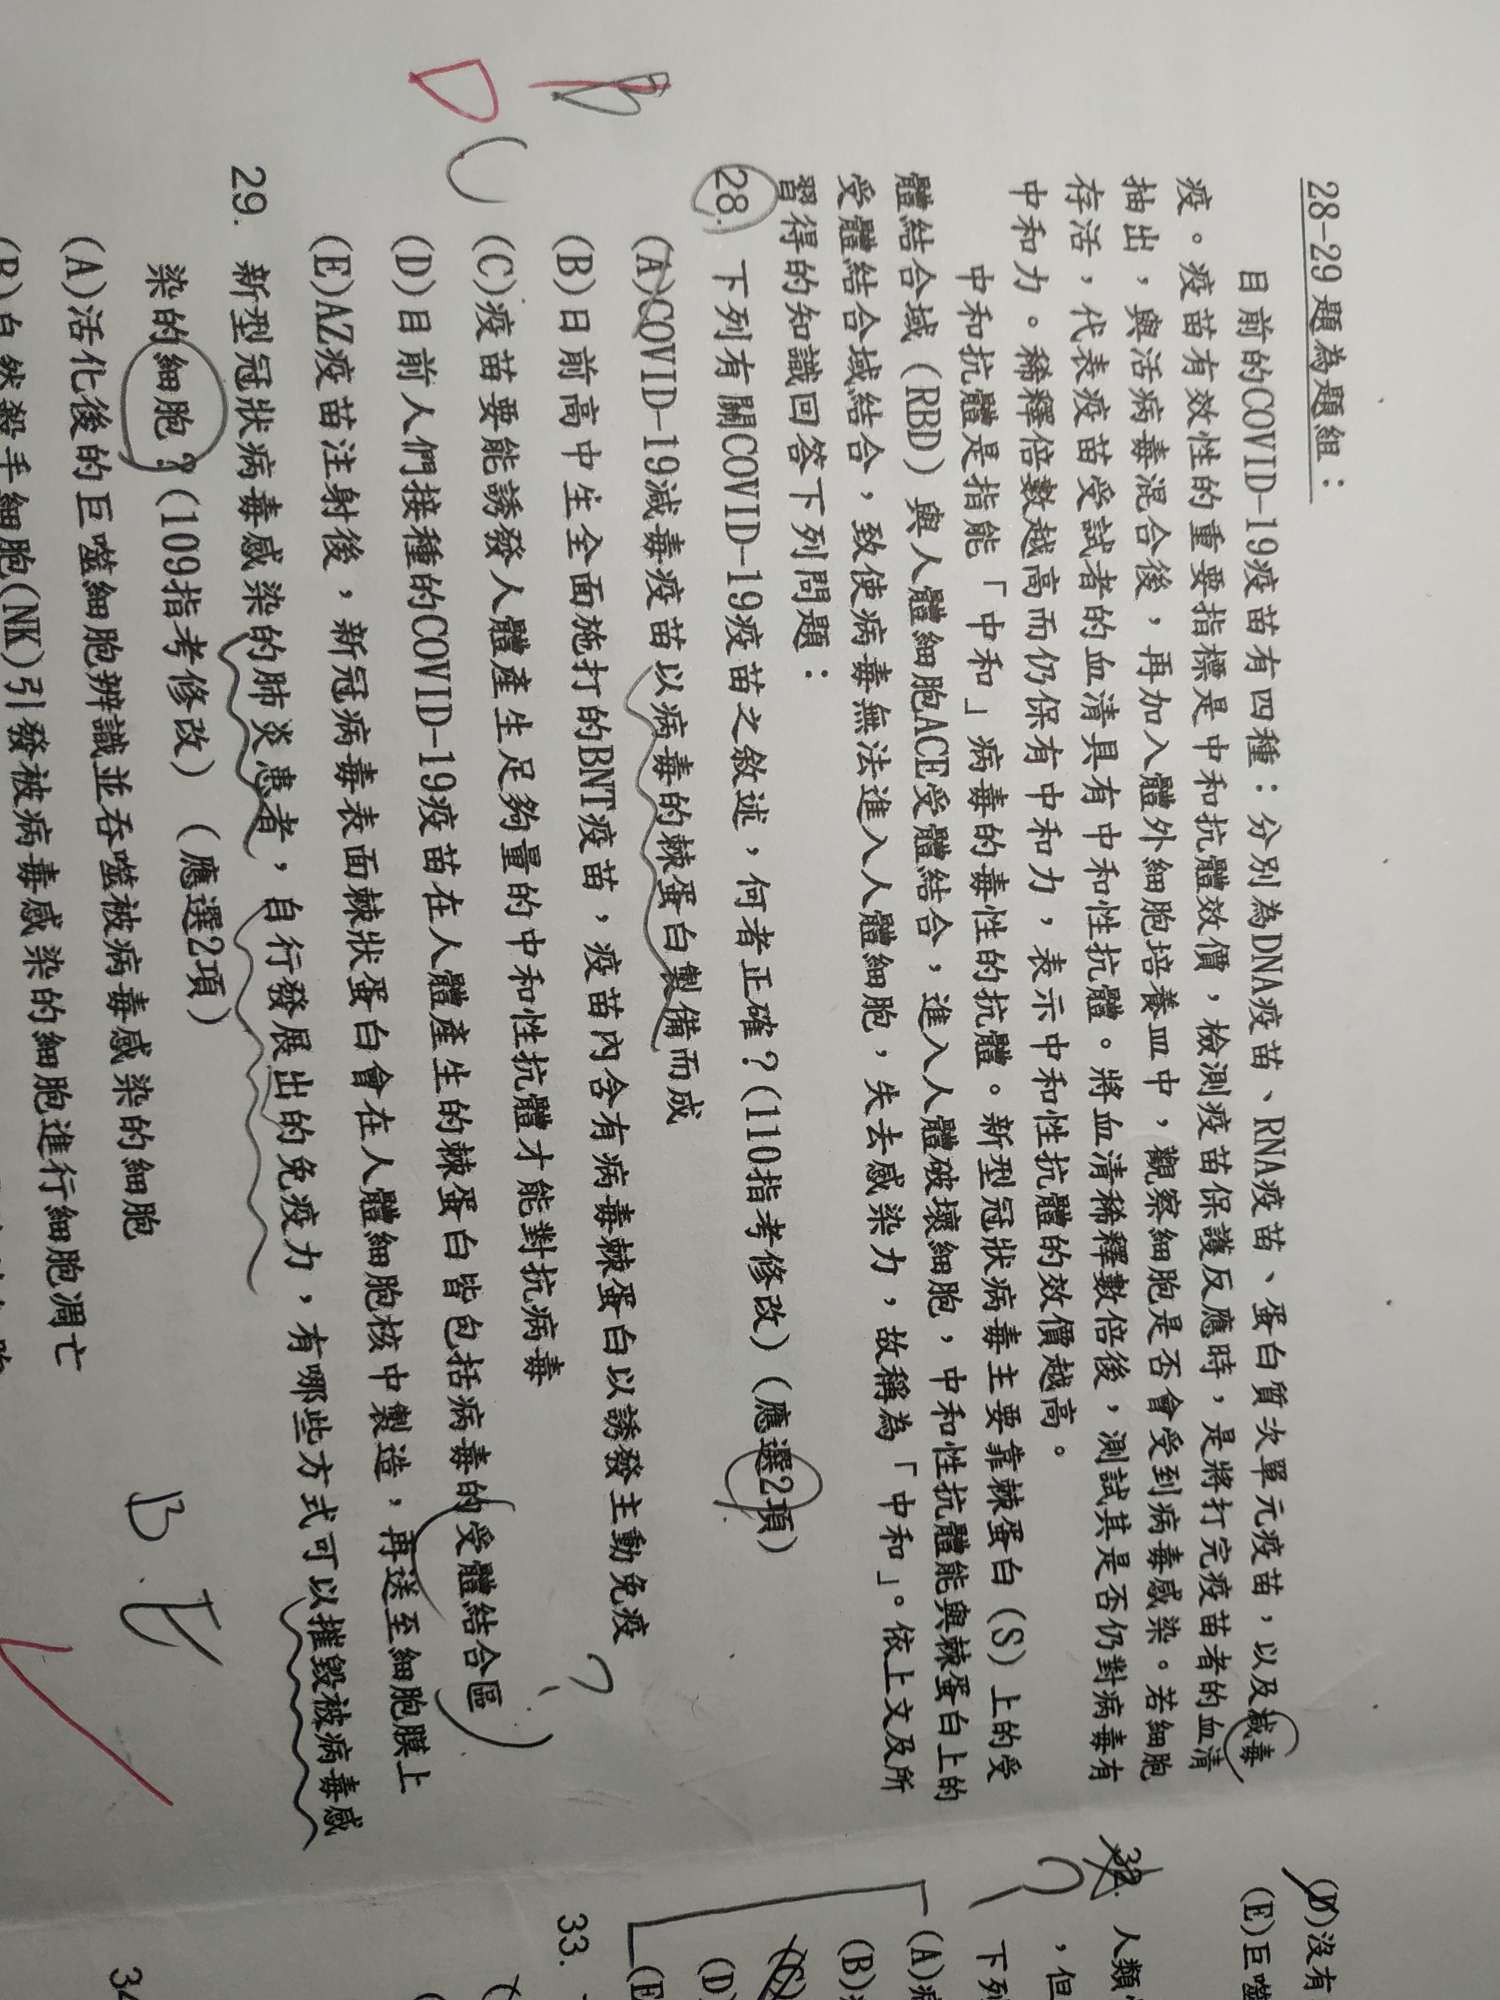 28-29題為題組：
目前的COVID-19疫苗有四種：分別為DNA疫苗、RNA疫苗、蛋白質次單元疫苗，以及減毒
疫。疫苗有效性的重要指標是中和抗體效價，檢測疫苗保護反應時，是將打完疫苗者的血清
抽出，與活病毒混合後，再加入體外細胞培養皿中，觀察細胞是否會受到病毒感染。若細胞
存活，代表疫苗受試者的血清具有中和性抗體。將血清稀釋數倍後，測試其是否仍對病毒有
中和力。稀釋倍數越高而仍保有中和力，表示中和性抗體的效價越高。
中和抗體是指能「中和」病毒的毒性的抗體。新型冠狀病毒主要靠棘蛋白(S)上的受
體結合域(RBD)與人體細胞ACE受體結合，進入人體破壞細胞，中和性抗體能與棘蛋白上的
受體結合域結合，致使病毒無法進入人體細胞，失去感染力，故稱為「中和」。依上文及所
習得的知識回答下列問題：
28. 下列有關COVID-19疫苗之敘述，何者正確？(110指考修改)(應選2項)
(A)COVID-19減毒疫苗以病毒的棘蛋白製備而成
B
(B)日前高中生全面施打的BNT疫苗，疫苗內含有病毒棘蛋白以誘發主動免疫
?
D C (C)疫苗要能誘發人體產生足夠量的中和性抗體才能對抗病毒
(D)目前人們接種的COVID-19疫苗在人體產生的棘蛋白皆包括病毒的受體結合區
(E)AZ疫苗注射後，新冠病毒表面棘狀蛋白會在人體細胞核中製造，再送至細胞膜上
29. 新型冠狀病毒感染的肺炎患者，自行發展出的免疫力，有哪些方式可以摧毀被病毒感
染的細胞？(109指考修改)(應選2項)
B. E
(A)活化後的巨噬細胞辨識並吞噬被病毒感染的細胞
(B)自然殺手細胞(NK)引發被病毒感染的細胞進行細胞凋亡
(D)沒有
(E)巨噬
32. 人類
，但
? 下列
(A)
(B)
(C)
(D)
(E
33.
34